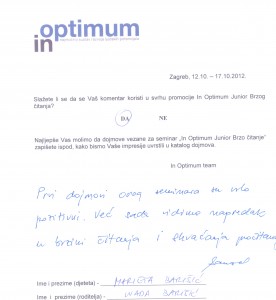 in optimum
Zagreb, 12.10. – 17.10.2012.
Slažete li se da se Vaš komentar koristi u svrhu promocije In Optimum Junior Brzog
čitanja?
DA NE
Najljepše Vas molimo da dojmove vezane za seminar „In Optimum Junior Brzo čitanje“
zapišete ispod, kako bismo Vaše impresije uvrstili u katalog dojmova.
In Optimum team
Prvi dojmovi ovog seminara su vrlo
pozitivni. Već sada vidimo napredak
u brzini čitanja i shvaćanja pročitanog
Ime i prezime (djeteta) - MARIETA BARIŠIĆ
Ime i prezime (roditelja) - NADA BARIŠIĆ